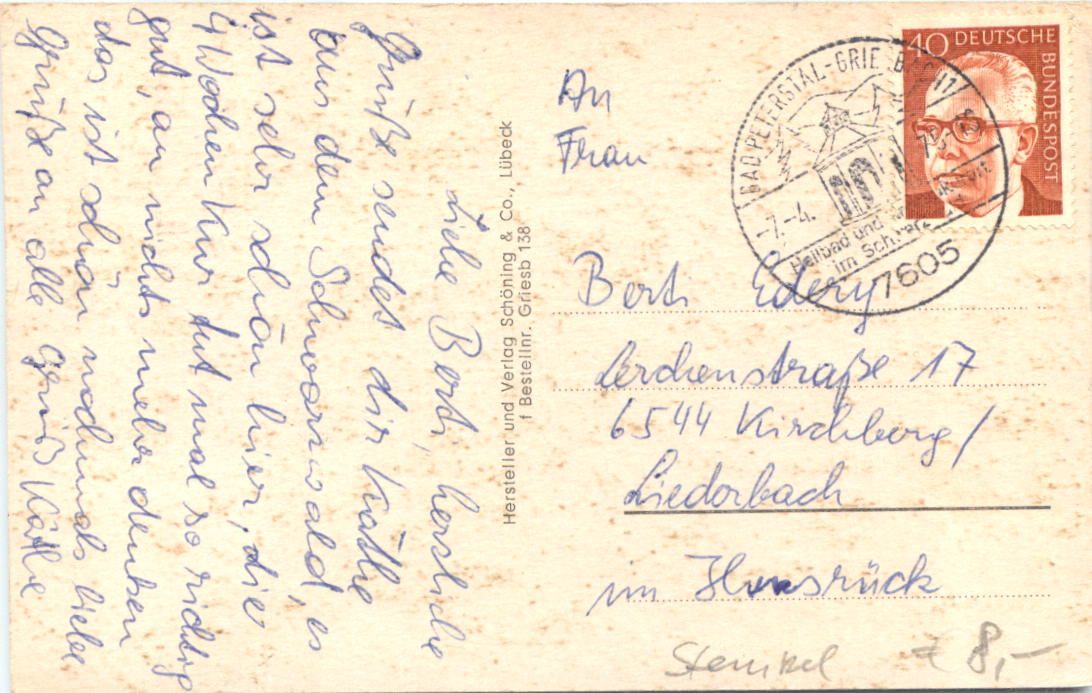 Liebe Berti, herzliche
Grüße sendet dir Käthe
aus dem Schwarzwald, es
ist sehr schön hier, die
4 Wochen Kur tut mal so richtig
gut, an nichts mehr denken
das ist schön nochmals liebe
Grüße an alle gruß Käthe
Hersteller und Verlag Schöning & Co., Lübeck
f Bestellnr. Griesb 138
An
Frau
Berti Edery
Lerchenstraße 17
6544 Kirchberg/
Liederbach
im Hunsrück
40 DEUTSCHE
BUNDESPOST
BAD PETERSTAL-GRIESBACH 1
7.-4.
Heilbad und
im Schwarz
7605
Stempel € 8,-